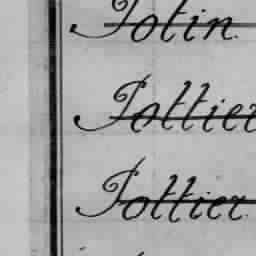 Potin
Pottier
Pottier